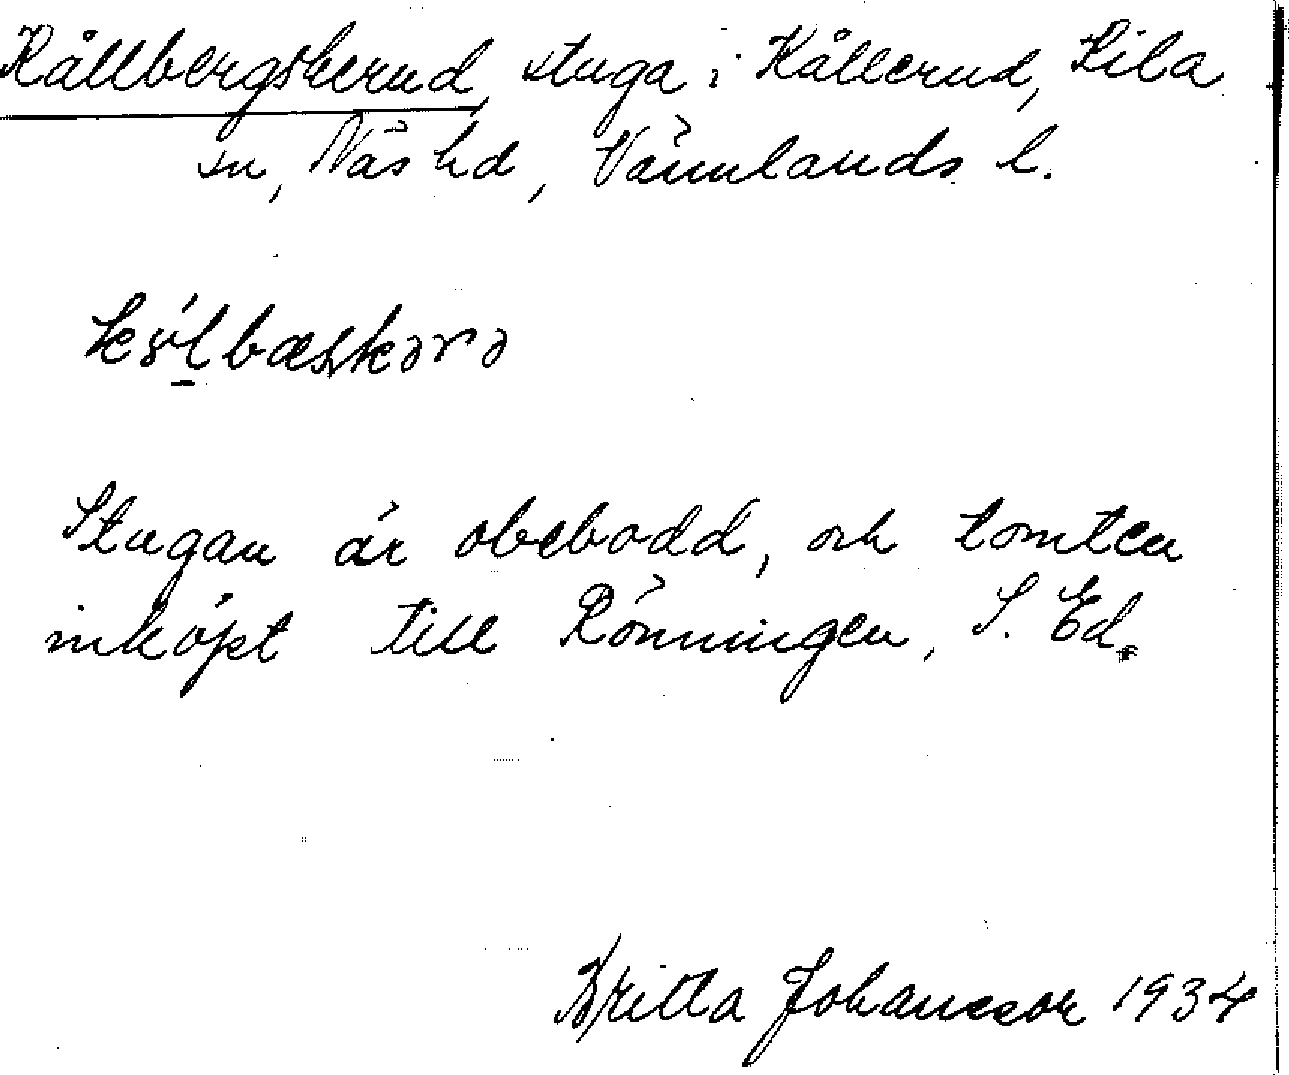 Kållbergskerud, stuga i Kållerud, Kila
sn, Näs hd, Värmlands l.
Stugan är obebodd, och tomten
inköpt till Rönningen, S. Ed.
Britta Johansson 1934